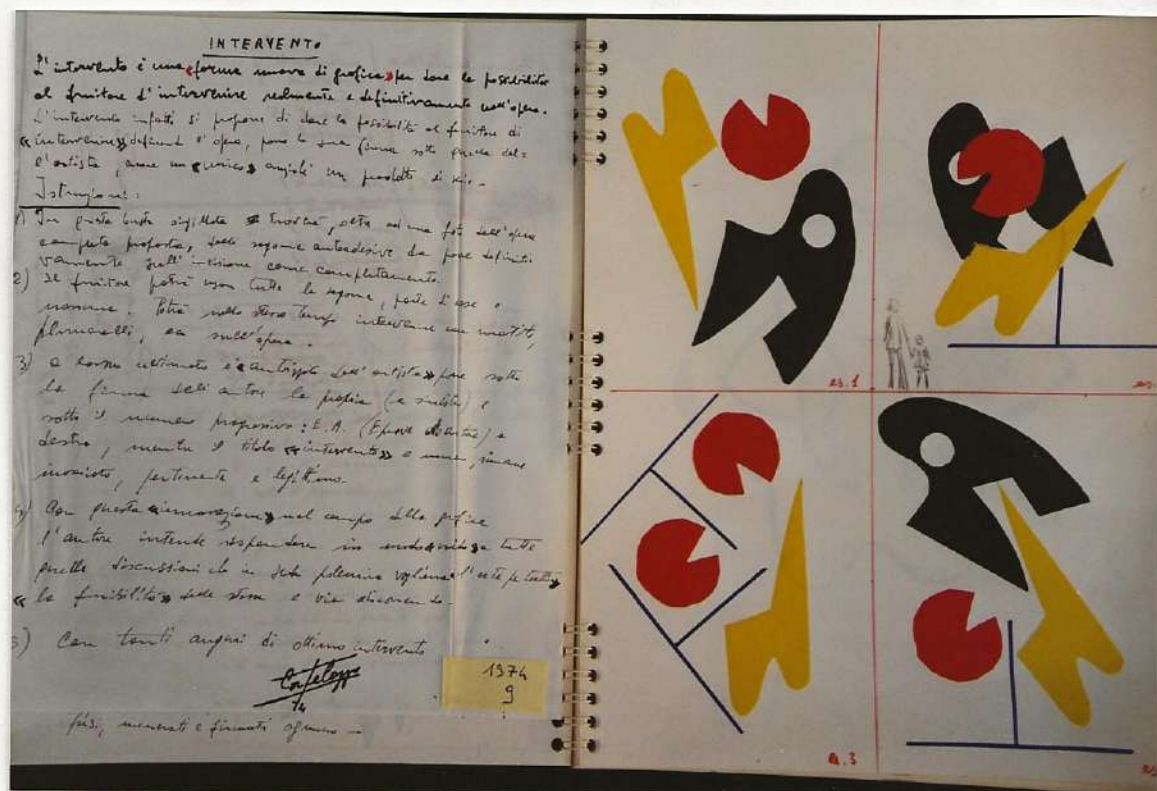 INTERVENTO
L'intervento è una «forma nuova di grafica» per dare la possibilità
al fruitore d'intervenire realmente e definitivamente nell'opera.
L'intervento infatti si propone di dare la possibilità al fruitore di
«intervenire» definendo l'opera, pone la sua firma sotto quella del=
l'artista, avere un «unico» anziché un prodotto di
Istruzioni:
1) In questa busta sigillata troverà, oltre ad una foto dell'opera
completa proposta, delle sagome autoadesive da porre definiti
vamente sull'incisione come completamento.
2) Il fruitore potrà usare tutte le sagome, parte d'esse o
nessuna. Potrà nello stesso tempo intervenire con matite,
pennarelli, sull'opera.
3) a lavoro ultimato è autorizzato dall'artista pone sotto
la firma dell'autore la propria (a sinistra) e
sotto il numero progressivo: E.A. (Epreuve d'Artiste) a
destra, mentre il titolo «intervento» rimane
invariato, pertinente e legittimo.
4) Con questa «innovazione» nel campo della grafica
l'autore intende rispondere in modo a tutte
quelle discussioni che in polemica vogliono «l'arte per tutti»
«la fruibilità» delle stesse e via discorrendo.
5) Con tanti auguri di ottimo intervento
74
numerati e firmati ognuno
1974
9
es.1
es.
es.3
es